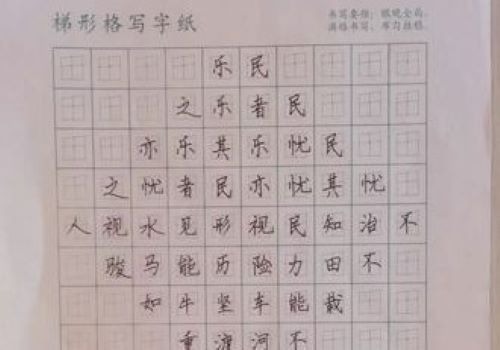 梯形格写字纸
书写要领：眼观全局，
乐民
之乐者民
亦乐其乐忧民
之忧者民亦忧其忧
人视水见形视民知治不
骏马能历险力田不
如牛坚车能载
重渡河不